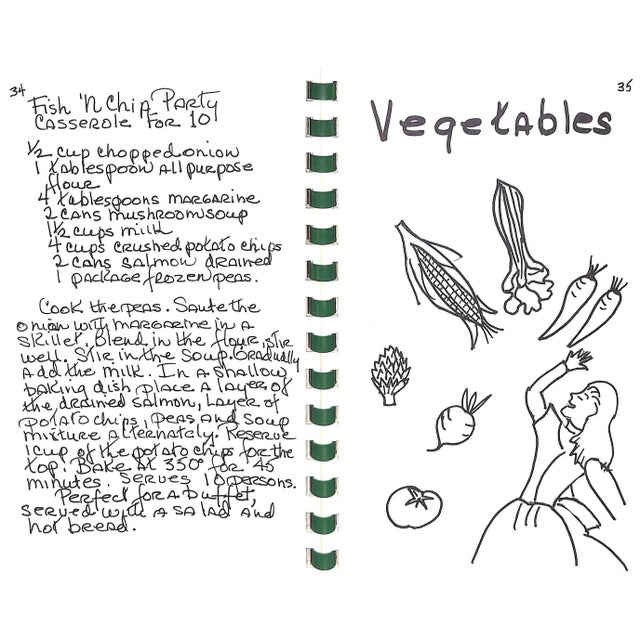 34
Fish 'N Chip Party
Casserole for 10
1/2 cup chopped onion
1 tablespoon all purpose
flour
4 tablespoons margarine
2 cans mushroom soup
1 1/2 cups milk
4 cups crushed potato chips
2 cans salmon drained
1 package frozen peas.
Cook the peas. Saute the
onion with margarine in a
skillet. Blend in the flour, stir
well. Stir in the soup. Gradually
add the milk. In a shallow
baking dish place a layer of
the drained salmon, layer of
potato chips, peas and soup
mixture alternately. Reserve
1 cup of the potato chips for the
top. Bake at 350° for 45
minutes. Serves 10 persons.
Perfect for a buffet,
served with a salad and
hot bread.
35
Vegetables